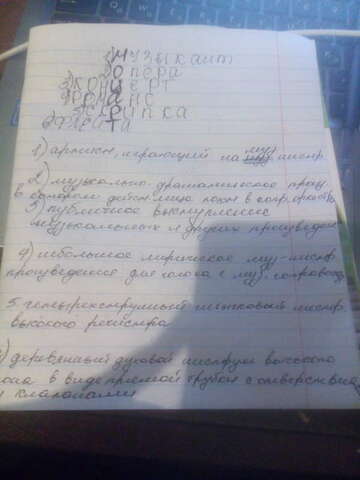 1)МУЗЫКАНТ
2)ОПЕРА
3)КОНЦЕРТ
4)РОМАНС
5)СКРИПКА
6)ФЛЕЙТА
1) артист, играющий на муз. инстр.
2) музыкально-драматическое произ.
в котором действ. лица поют в сопр. оркестра
3) публичное выступление
музыкальных и других произведен
4) небольшое лирическое муз-
произведение для голоса с муз. сопровожд
5. четырехструнный смычковый инстр.
высокого регистра
6) деревянный духовой инструм высокого
тона в виде прямой трубки с отверстиями
и клапанами